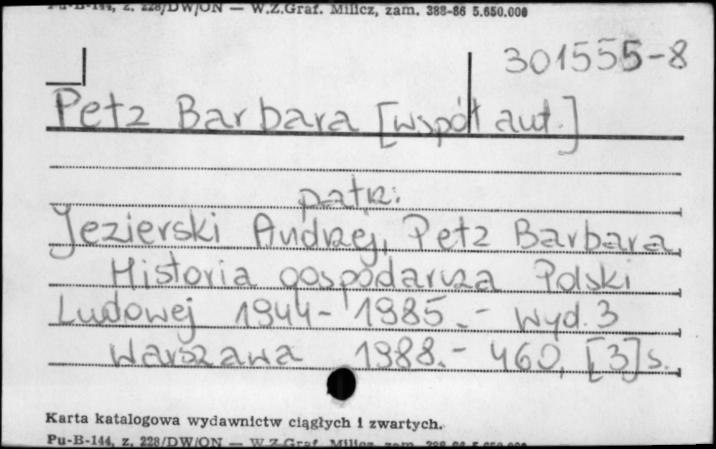 Pu-B-144, z. 228/DW/ON — W.Z.Graf. Milicz, zam. 388-86 5.650.000
301555-8
Petz Barbara [współ aut.]
patrz:
Jezierski Andrzej, Petz Barbara
Historia gospodarcza Polski
Ludowej 1944-1985.- Wyd. 3
Warszawa 1988.- 460, [3] s.
Karta katalogowa wydawnictw ciągłych i zwartych.
Pu-B-144, z. 228/DW/ON — W.Z.Graf. Milicz, zam. 388-86 5.650.000